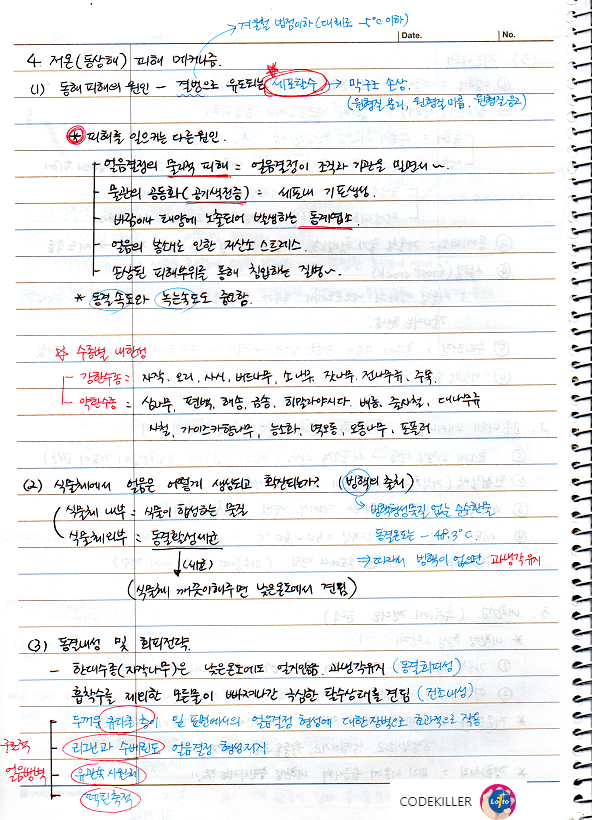 겨울철 빙점이하 (대체로 -5°C 이하)
Date.
No.
4 저온(동상해) 피해 메커니즘.
(1) 동해 피해의 원인 - 결빙으로 유도되는 세포탈수 → 막구조 손상.
(원형질 분리, 원형질 미음, 원형질 응고)
* 피해를 일으키는 다른원인.
얼음결정의 물리적 피해 = 얼음결정이 조직과 기관을 밀면서~.
물관의 공동화(공기색전증) = 세포내 기포생성.
바람이나 태양에 노출되어 발생하는 동계엽소.
얼음의 낳이로 인한 저산소 스트레스.
손상된 피해부위를 통해 침입하는 질병~.
* 동결속도와 녹는속도도 중요함.
☆ 수종별 내한성
강한수종 = 자작, 오리, 사시, 버드나무, 소나무, 잣나무, 전나무류, 주목.
약한수종 = 삼나무, 편백, 해송, 금송, 히말라야시다, 배롱, 줄사철, 대나무류
사철, 가이즈까향나무, 능소화, 벽오동, 오동나무, 포플러
(2) 식물체에서 얼음은 어떻게 생성되고 확산되는가? (빙핵의 출처)
식물체 내부 = 식물이 합성하는 물질
식물체외부 = 동결활성세균
(세균)
(식물체 깨끗이해주면 낮은온도에서 견딤)
빙핵형성물질 없는 순수한물
동결온도는 -48.3°C.
⇒ 따라서 빙핵이 없으면 과냉각유지
(3) 동결내성 및 회피전략.
- 한대수종(자작나무)은 낮은온도에도 얼지않음. 과냉각유지 (동결회피성)
흡착수를 제외한 모든물이 빠져나간 극심한 탈수상태를 견딤 (건조내성)
구조적
얼음방벽
두꺼운 큐티클 층이 잎 표면에서의 얼음결정 형성에 대한 장벽으로 효과적으로 작용
리그닌과 수베린도 얼음결정 형성저지
유관속 시원체
펙틴축적
CODEKILLER
Lotto